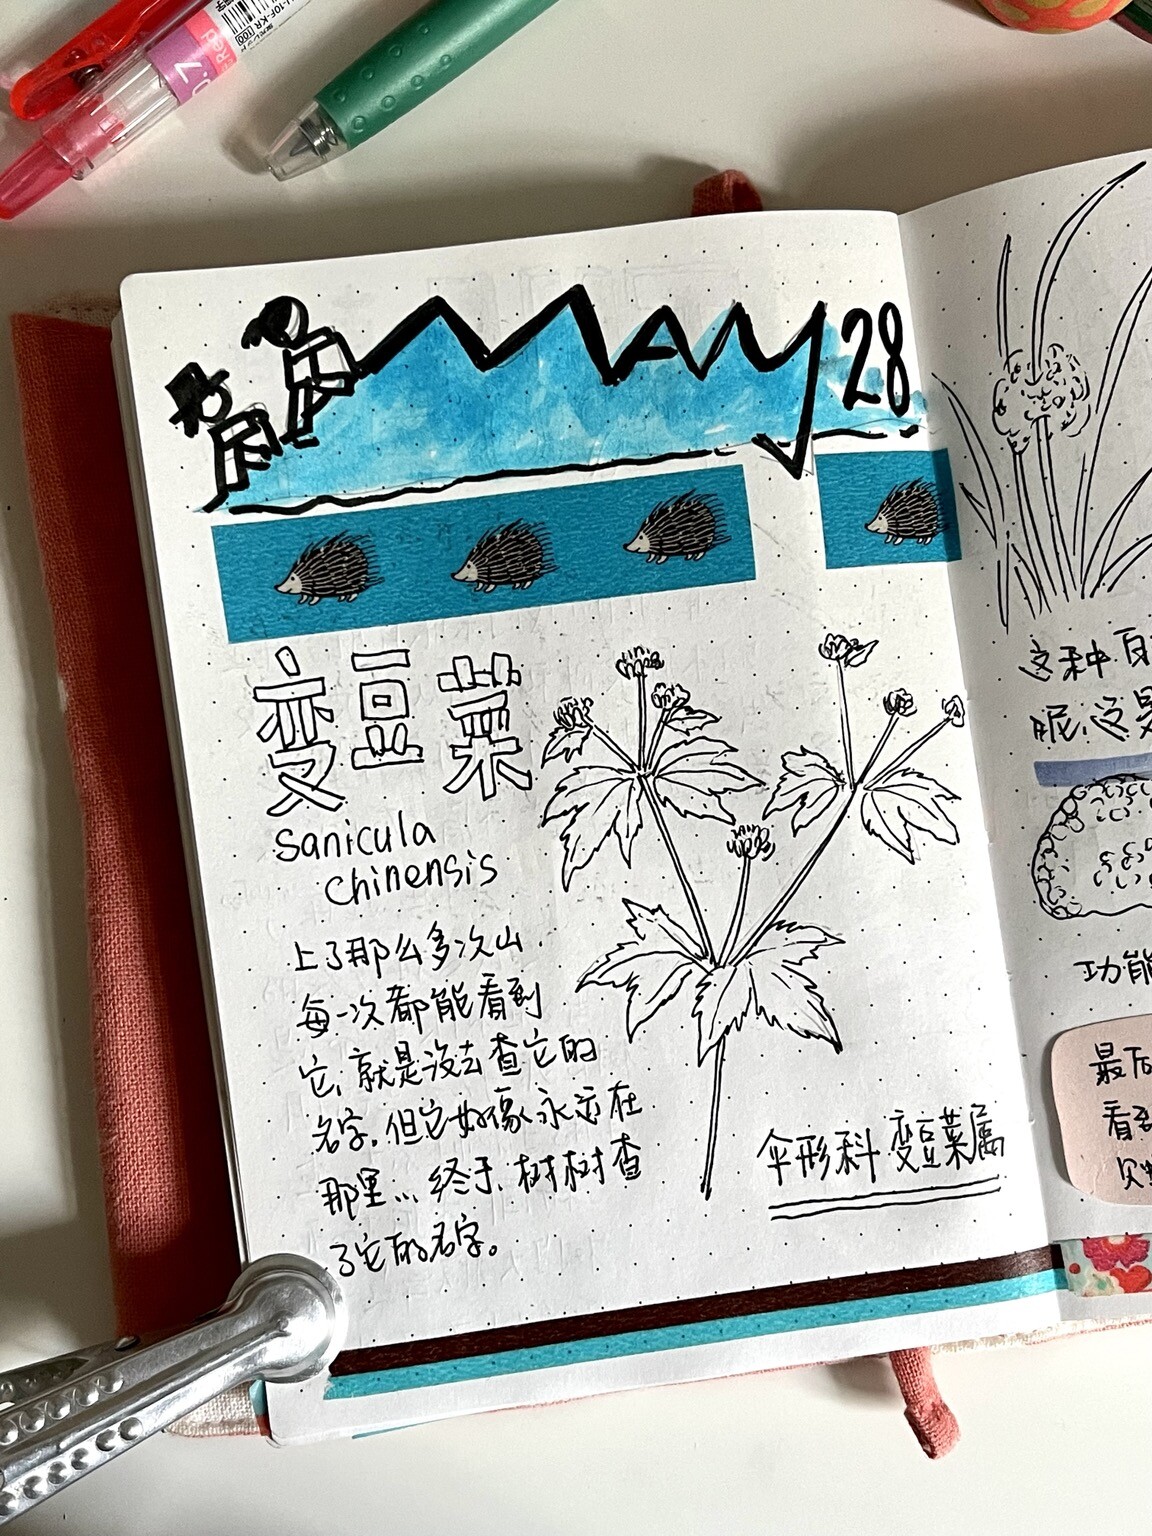 MAY 28
变豆菜
Sanicula
chinensis
上了那么多次山
每一次都能看到
它,就是没去查它的
名字.但它好像永远在
那里...终于,树树查
了它的名字。
伞形科 变豆菜属
这种
呢,这是
功能
最后
看到
0.7
Red